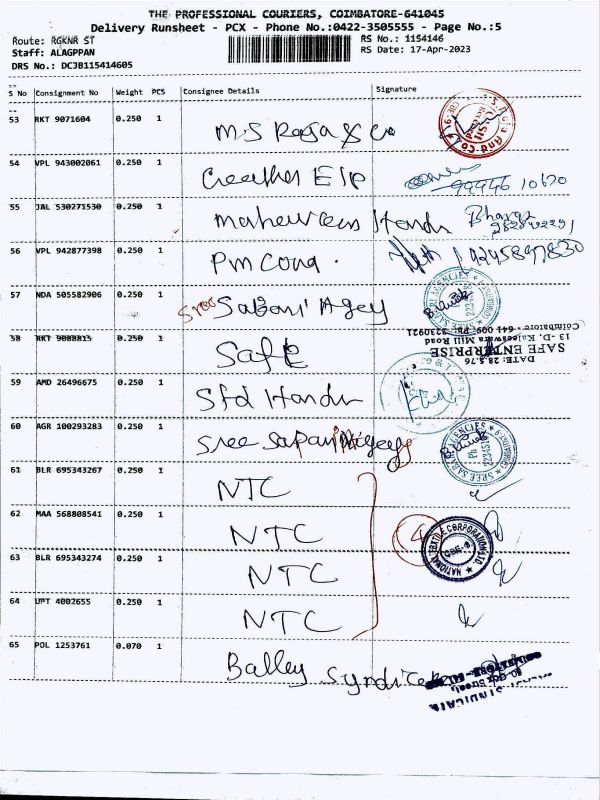 THE PROFESSIONAL COURIERS, COIMBATORE-641045
Delivery Runsheet - PCX - Phone No.:0422-3505555 - Page No.:5
Route: RGKNR ST
RS No.: 1154146
Staff: ALAGPPAN
RS Date: 17-Apr-2023
DRS No.: DCJB115414605
S No Consignment No Weight PCS Consignee Details Signature
53 RKT 9071604 0.250 1 M.S Raja & Co
54 VPL 943002061 0.250 1 99446 10620
55 JAL 530271530 0.250 1
56 VPL 942877398 0.250 1 Pm Cona . 9245897830
57 NDA 505582906 0.250 1 Sree Sabari Agey
SREE SABARI AGENCIES
58 RKT 9088815 0.250 1 Safe
DATE: 28.5.76
SAFE ENTERPRISE
13 - D, Kaleeswara Mill Road
Coimbatore - 641 009. Ph: 2230921
59 AMD 26496675 0.250 1 Std Handu
60 AGR 100293283 0.250 1 Sree Sapari Agey
SREE SABARI AGENCIES
61 BLR 695343267 0.250 1 NTC
62 MAA 568808541 0.250 1 NTC
4
NATIONAL TEXTILE CORPORATION LTD.
CBE-9
63 BLR 695343274 0.250 1 NTC
64 UPT 4002655 0.250 1 NTC
65 POL 1253761 0.070 1 Balley Syndicate